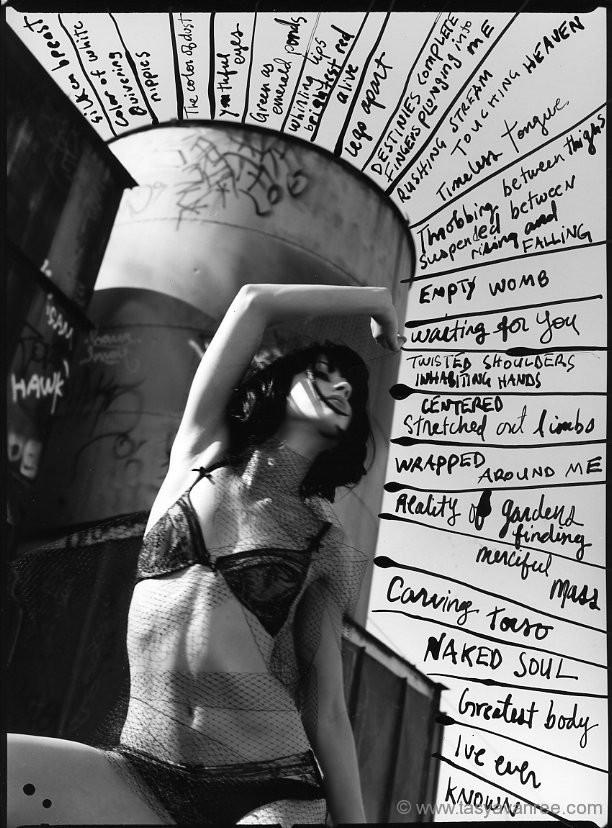 silken breast
Color of white
Quivering
nipples
The color of dust
youthful
eyes
Green as
emerald ponds
whirling lips
brightest red
alive
legs apart
DESTINIES COMPLETE
FINGERS plunging into
ME
RUSHING STREAM
TOUCHING HEAVEN
Timeless tongue
Throbbing between thighs
suspended between
rising and
FALLING
EMPTY WOMB
waiting for you
TWISTED SHOULDERS
INHABITING HANDS
CENTERED
Stretched out limbs
WRAPPED
AROUND ME
Reality of gardens
finding
merciful
Mass
Carving torso
NAKED SOUL
Greatest body
I've ever
KNOWN
HAWK
© www.tasyavanree.com